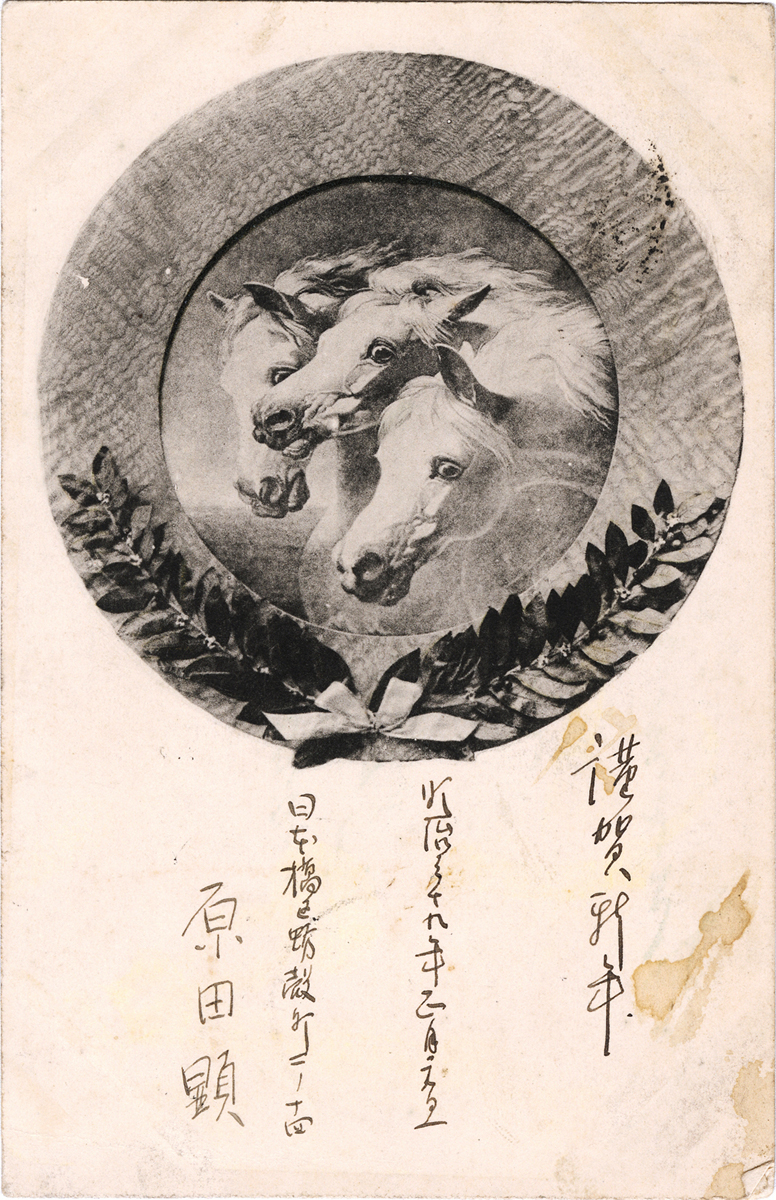 謹賀新年
明治三十九年正月元旦
日本橋区蛎殻町二ノ十四
原田顕